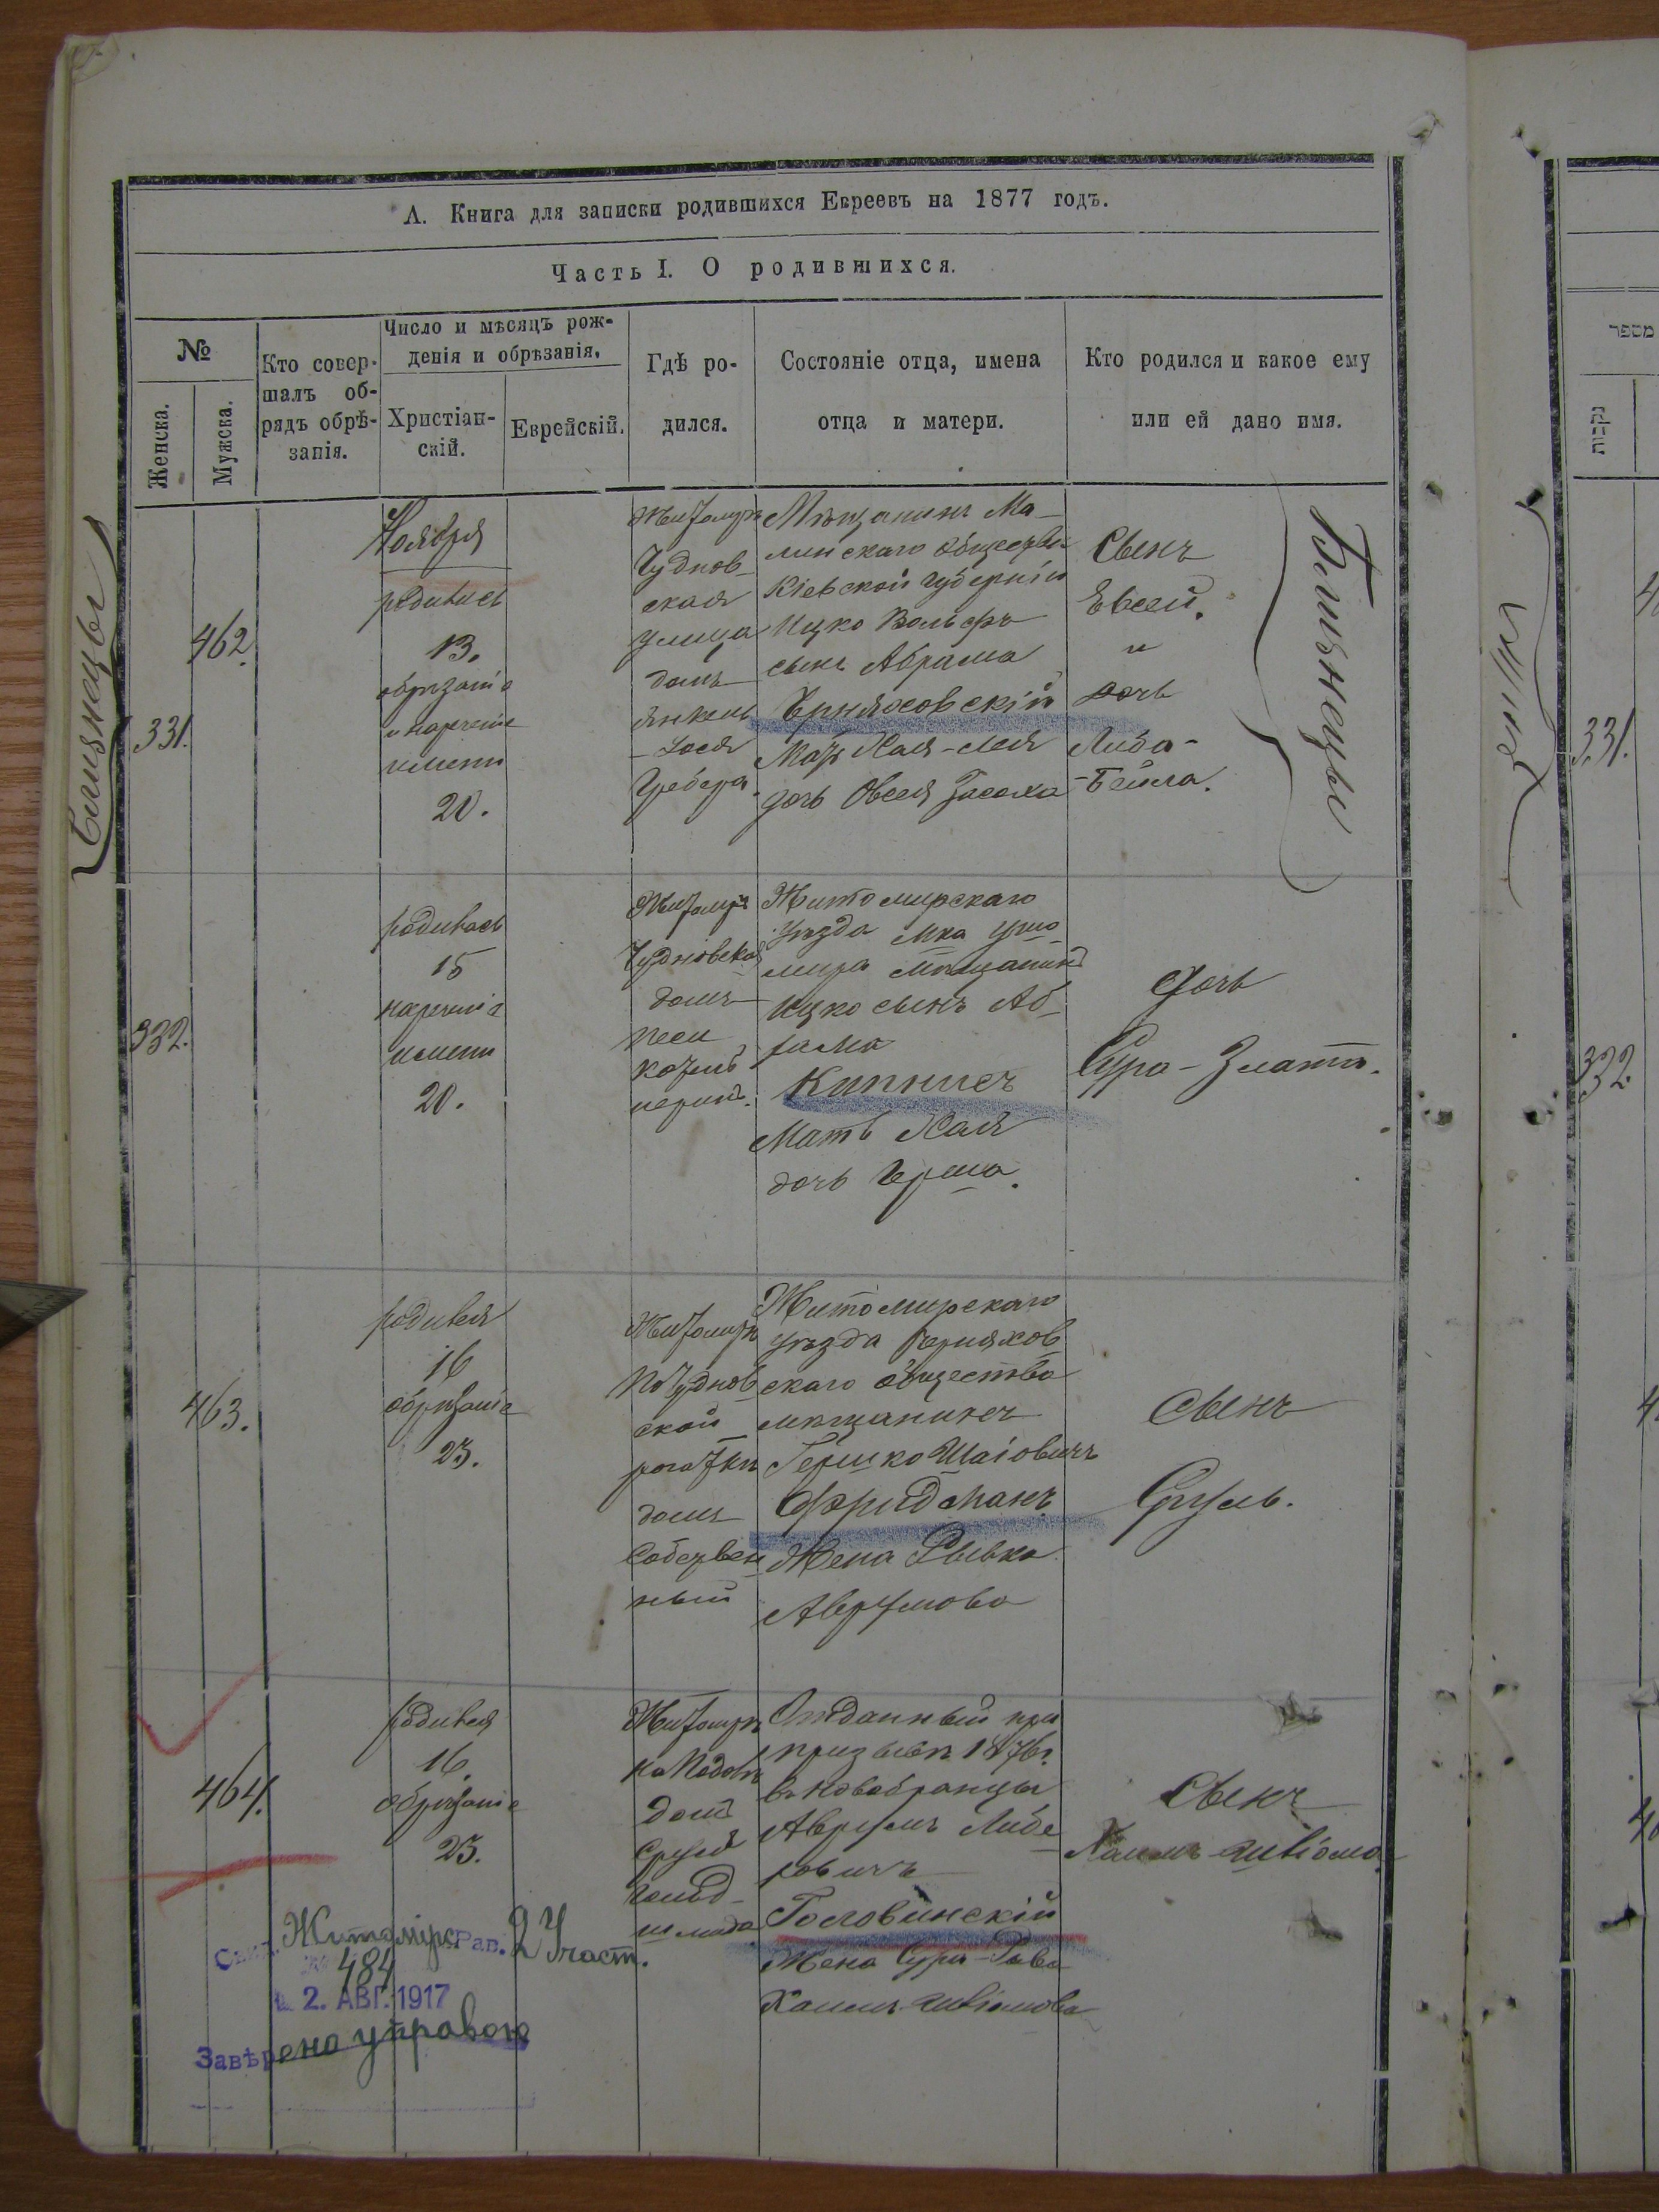 А. Книга для записки родившихся Евреевъ на 1877 годъ.
Часть I. О родившихся.
№
Женска.
Мужска.
Кто совер-
шалъ об-
рядъ обрѣ-
занія.
Число и мѣсяцъ рож-
денія и обрѣзанія.
Христіан-
скій.
Еврейскій.
Гдѣ ро-
дился.
Состояніе отца, имена
отца и матери.
Кто родился и какое ему
или ей дано имя.
Близнецы
331.
462.
Ноября
родились
13.
обрѣзаніе
и нареченіе
имени
20.
Житомиръ
Чуднов-
ская
улица
домъ
Янкель
Гребера.
Мѣщанинъ Ма-
линскаго общества
Кіевской губерніи
Ицко Вольфъ
сынъ Абрама
Черняховскій
Мать Хая-Лея
дочь Овсея
Сынъ
Евсей.
и
дочь
Либа-
-Бейла.
Близнецы
332.
родилась
15
нареченіе
имени
20.
Житомиръ
Чудновская
домъ
Песи
Житомирскаго
уѣзда мка
мѣщанинъ
Ицко сынъ Аб-
рама
Кипнисъ
Мать Хая
дочь Герша.
дочь
Сура-Злата.
463.
родился
16
обрѣзаніе
23.
Житомиръ
по Чуднов
ской
рогаткѣ
домъ
Собствен
ный
Житомирскаго
уѣзда Черняхов
скаго общества
мѣщанинъ
Гершко Шаіовичъ
Фридманъ
Жена Рывка
Аврумова
Сынъ
Сруль.
464.
родился
16.
обрѣзаніе
23.
Житомиръ
на Подолѣ
домъ
Сруля
Гольд-
Отданный при
призывѣ 1876 г.
въ новобранцы
Аврумъ Либе
ровичъ
Головинскій
Жена Сура-
Хаимъ-Шліомова
Сынъ
Хаимъ-Шліома.
Житомірс. Рав. 2 Участ.
№ 484
2. АВГ. 1917
Завѣрено управою
מספר
נקבות
331.
332.